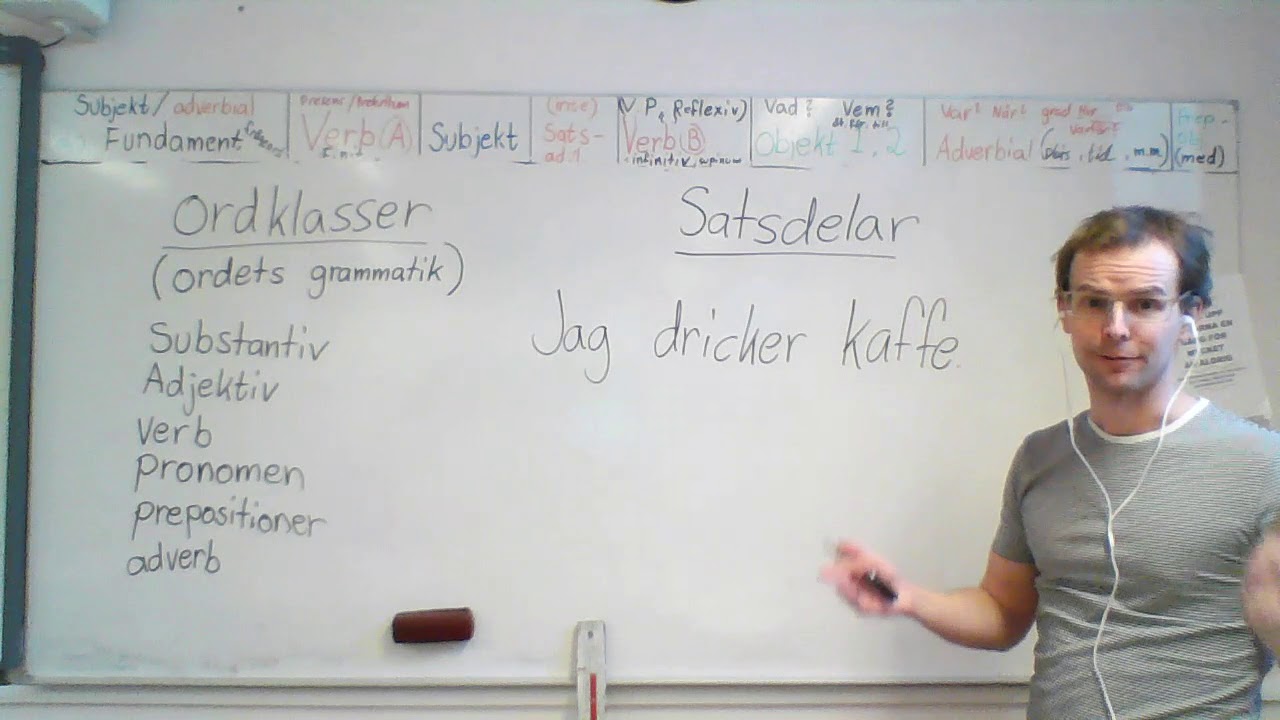 Subjekt / adverbial
Fundament
Presens / Preteritum
Verb (A)
Subjekt
(inte)
Sats-
adv.
(V P, Reflexiv)
Verb (B)
infinitiv, supinum
Vad? Vem?
Objekt 1, 2
Var? När? grad Hur
Varför?
Adverbial (plats, tid, m.m.)
Prep.-
(med)
Ordklasser
(ordets grammatik)
Substantiv
Adjektiv
Verb
Pronomen
prepositioner
adverb
Satsdelar
Jag dricker kaffe.